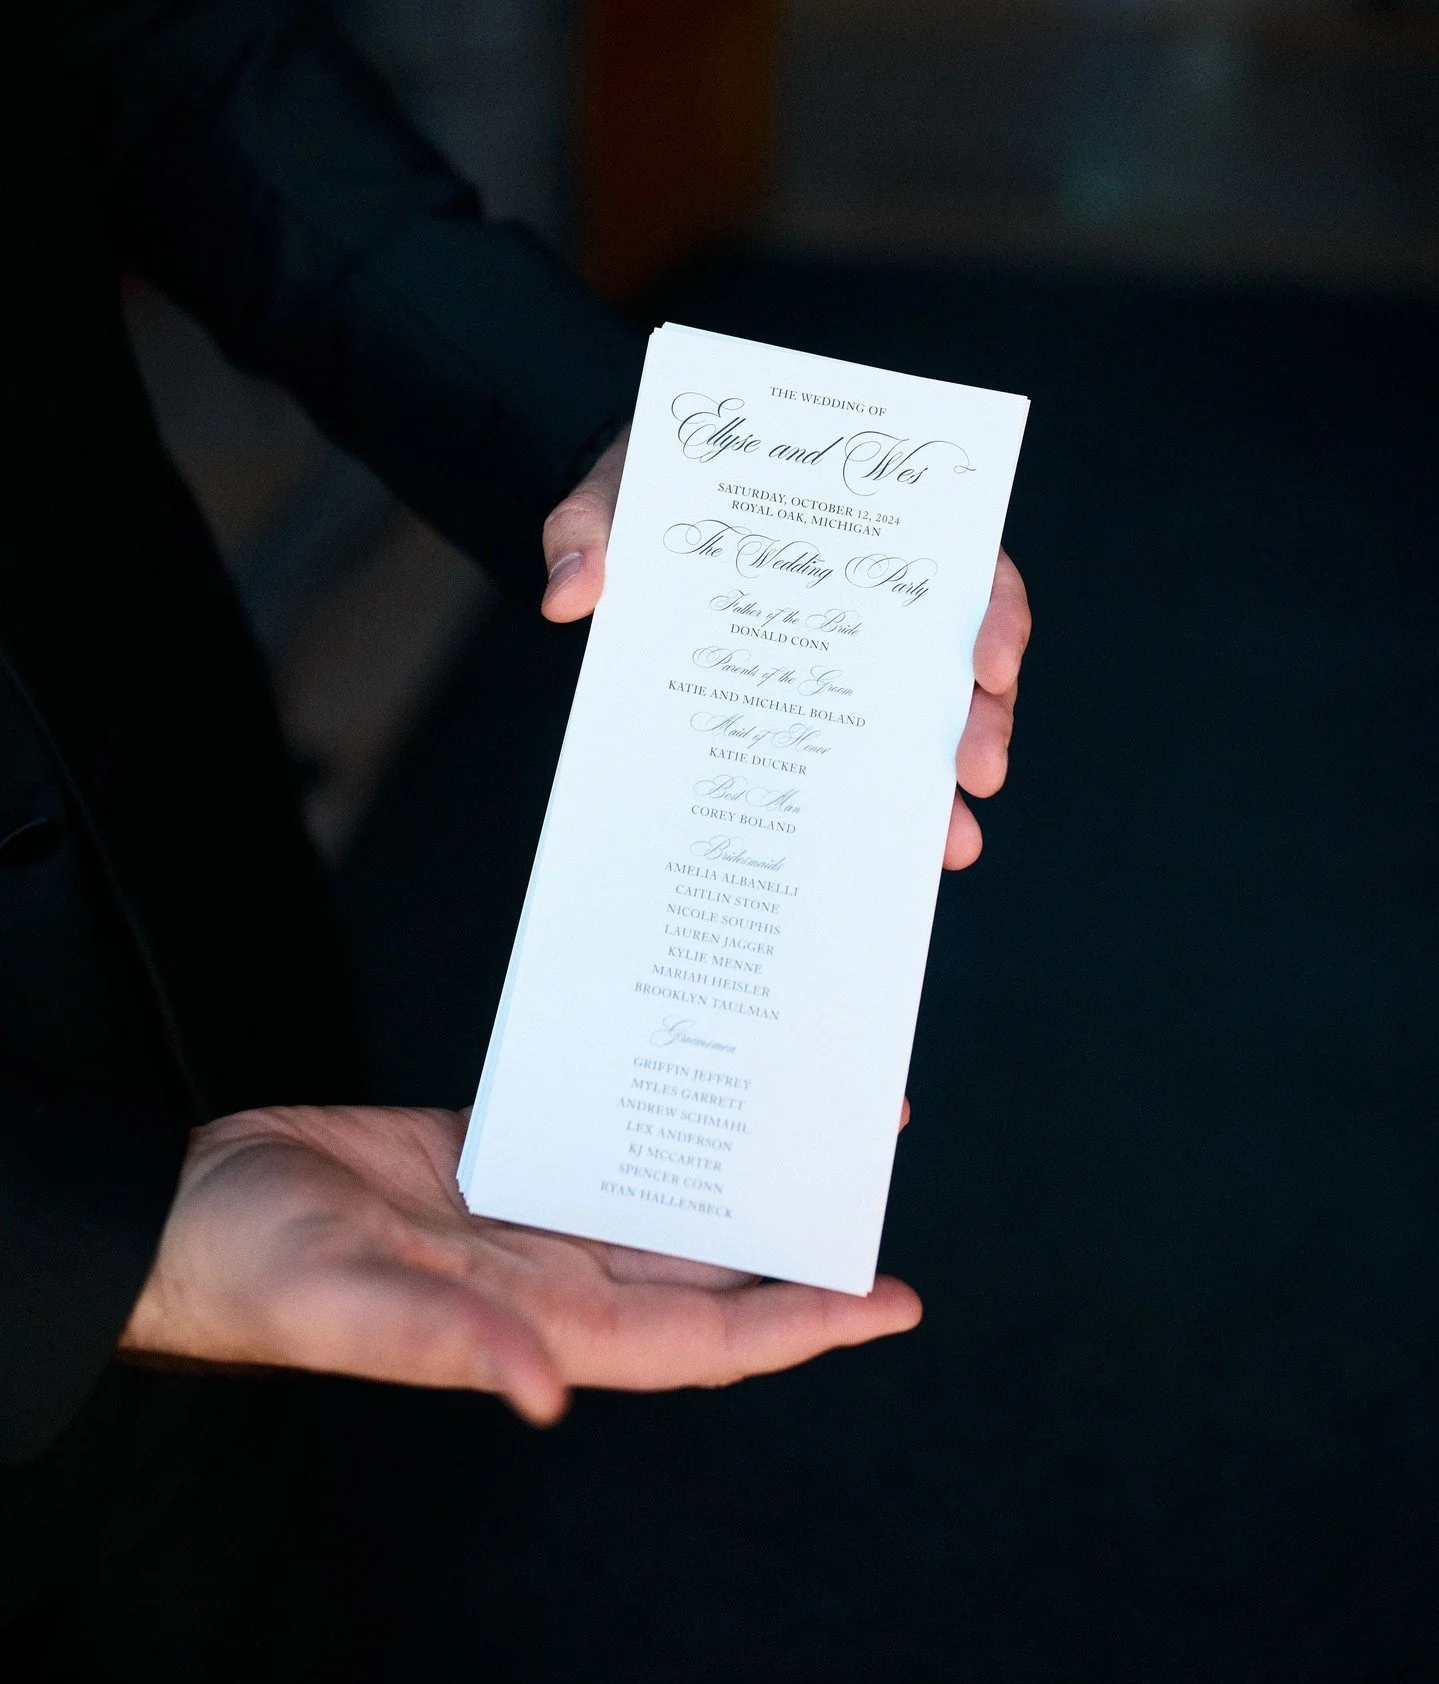 THE WEDDING OF
Ellyse and Wes
SATURDAY, OCTOBER 12, 2024
ROYAL OAK, MICHIGAN
The Wedding Party
Father of the Bride
DONALD CONN
Parents of the Groom
KATIE AND MICHAEL BOLAND
Maid of Honor
KATIE DUCKER
Best Man
COREY BOLAND
Bridesmaids
AMELIA ALBANELLI
CAITLIN STONE
NICOLE SOUPHIS
LAUREN JAGGER
KYLIE MENNE
MARIAH HEISLER
BROOKLYN TAULMAN
Groomsmen
GRIFFIN JEFFREY
MYLES GARRETT
ANDREW SCHMAHL
LEX ANDERSON
KJ MCCARTER
SPENCER CONN
RYAN HALLENBECK